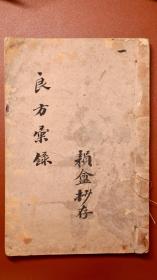 良方彙錄
穎盦抄存